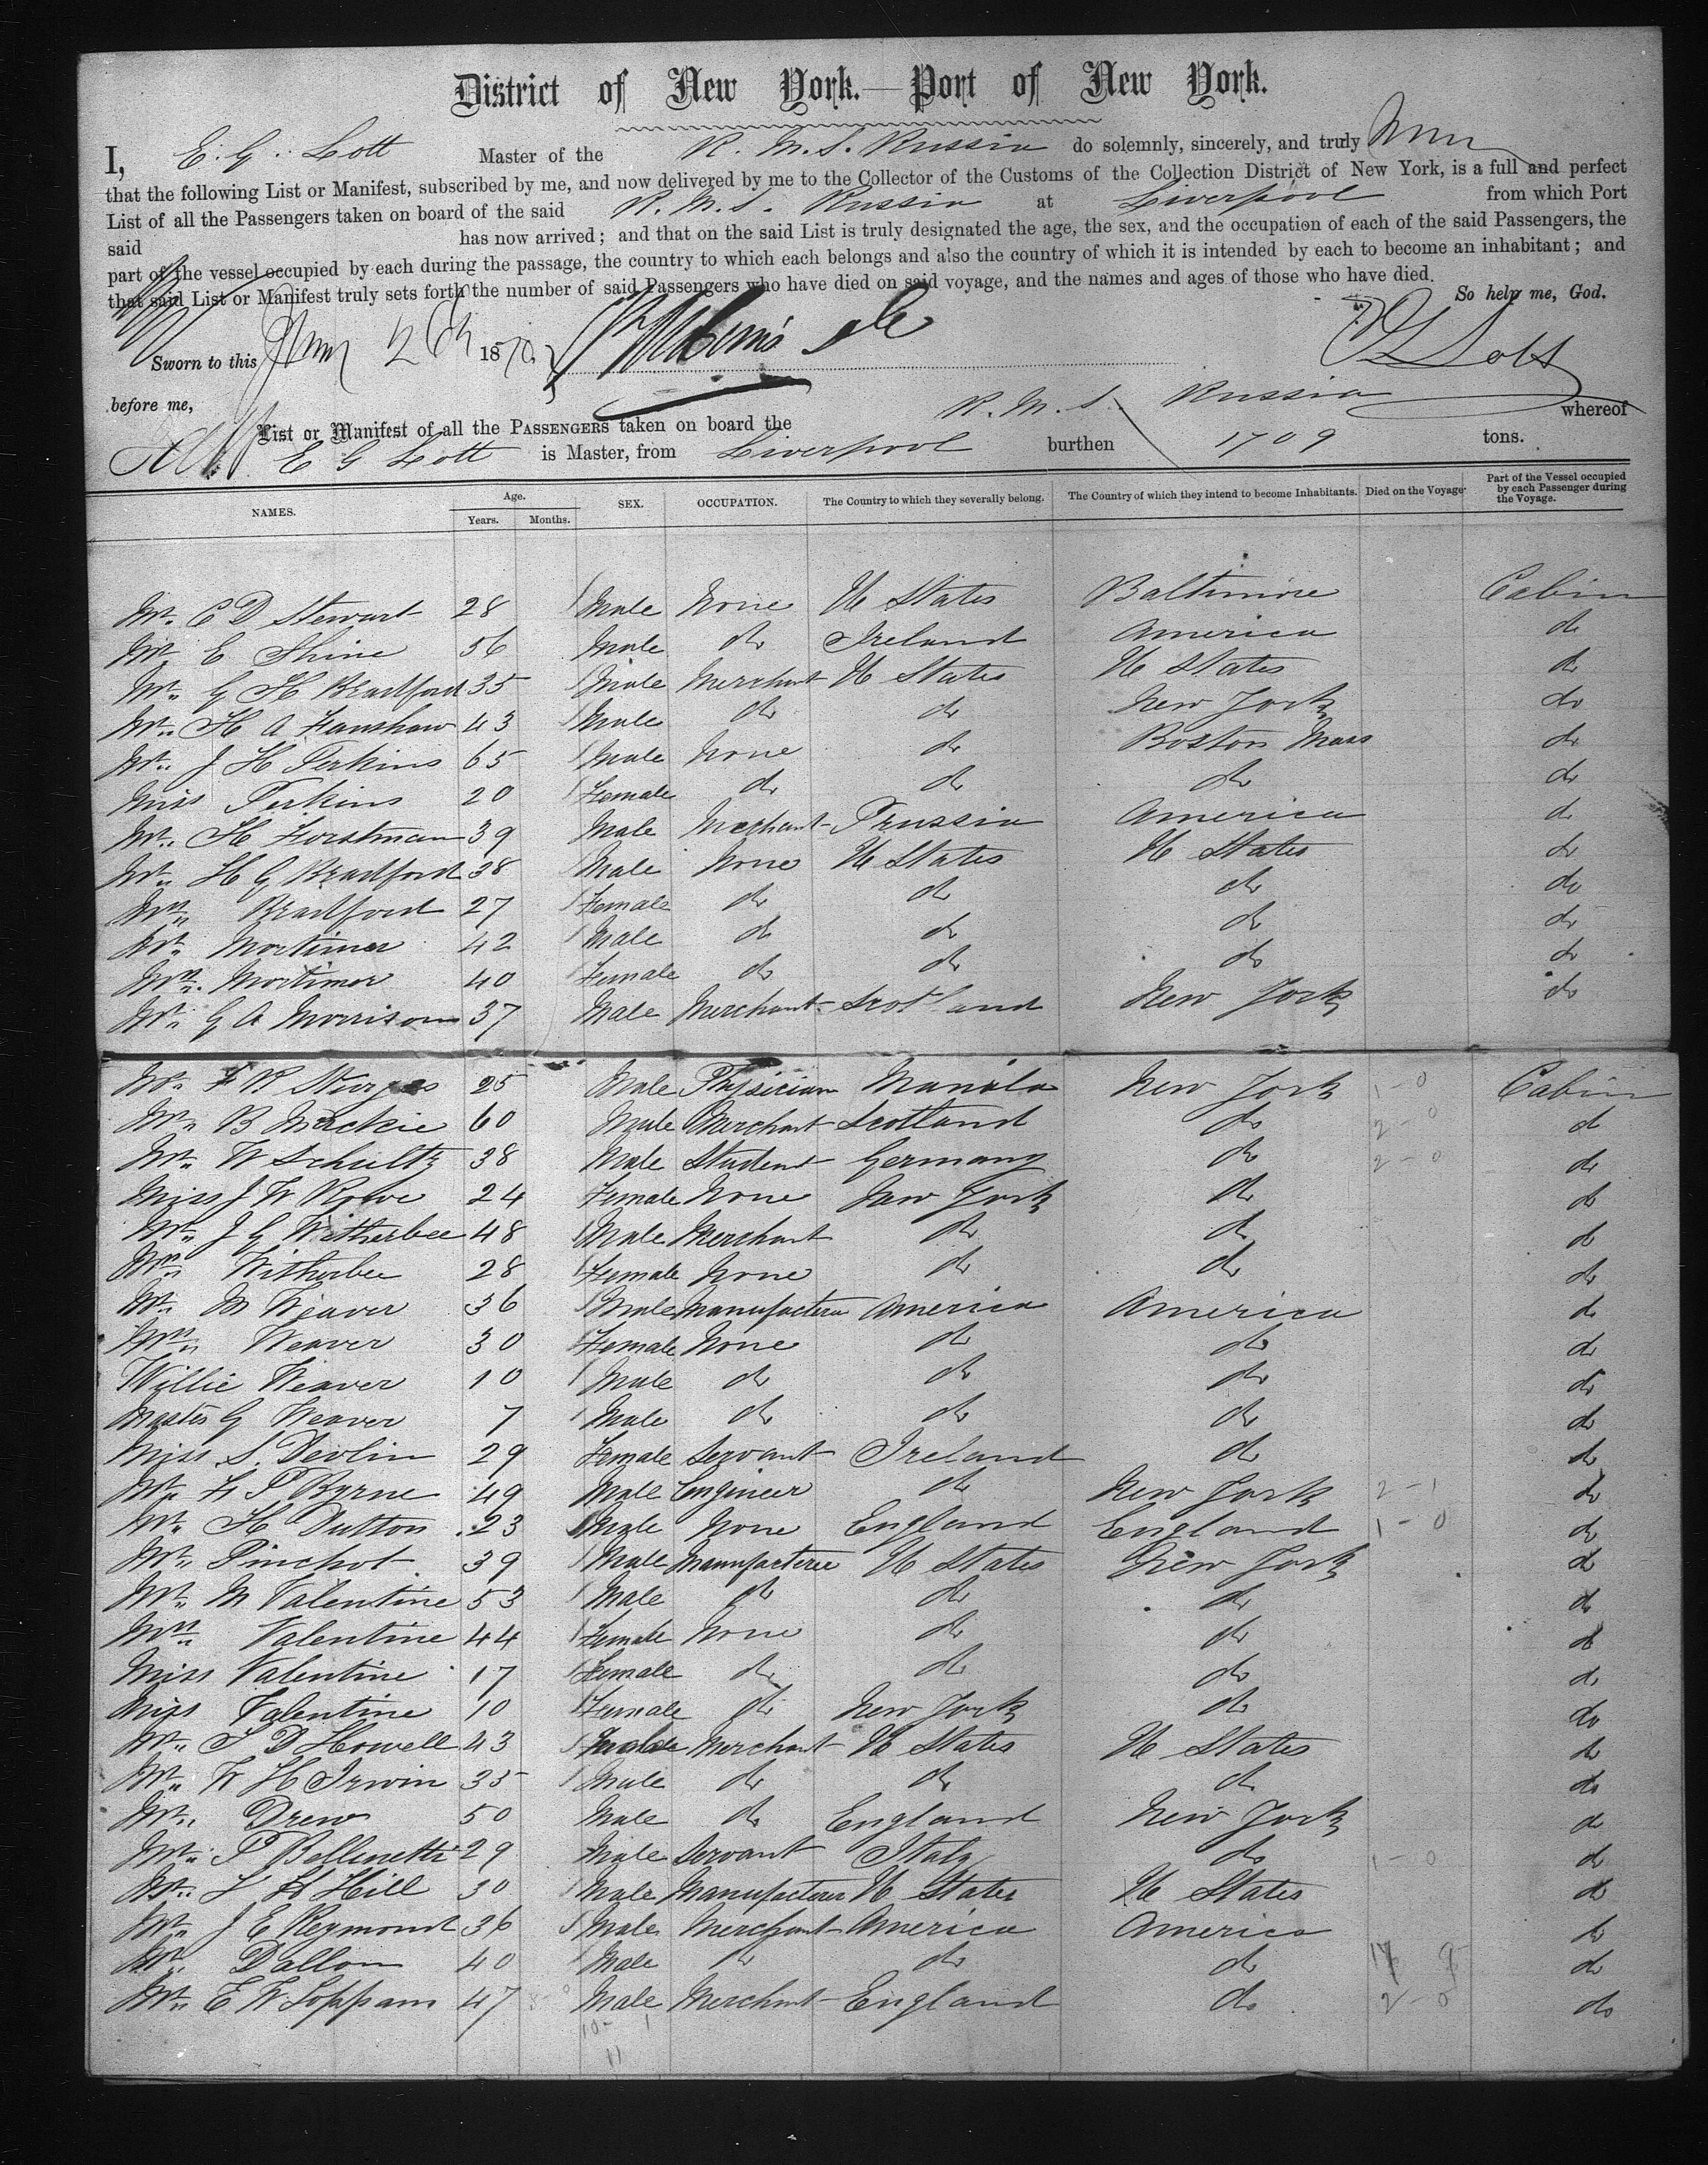 District of New York.—Port of New York.
I, E. G. Lott Master of the R. M. S. Russia do solemnly, sincerely, and truly
that the following List or Manifest, subscribed by me, and now delivered by me to the Collector of the Customs of the Collection District of New York, is a full and perfect
List of all the Passengers taken on board of the said R. M. S. Russia at Liverpool from which Port
said has now arrived; and that on the said List is truly designated the age, the sex, and the occupation of each of the said Passengers, the
part of the vessel occupied by each during the passage, the country to which each belongs and also the country of which it is intended by each to become an inhabitant; and
that said List or Manifest truly sets forth the number of said Passengers who have died on said voyage, and the names and ages of those who have died.
So help me, God.
Sworn to this 26th 1870 E G Lott
before me,
List or Manifest of all the PASSENGERS taken on board the R. M. S. Russia whereof
E G Lott is Master, from Liverpool burthen 1709 tons.
NAMES. Age. Years. Months. SEX. OCCUPATION. The Country to which they severally belong. The Country of which they intend to become Inhabitants. Died on the Voyage. Part of the Vessel occupied by each Passenger during the Voyage.
Mr. C D Stewart 28 Male None U States Baltimore Cabin
Mr. E Shine 56 Male do Ireland America do
Mr. G H Bradford 35 Male Merchant U States U States do
Mr. H A Fanshaw 43 Male do do New York do
Mr. J H Perkins 65 Male None do Boston Mass do
Miss Perkins 20 Female do do do do
Mr. H Forstman 39 Male Merchant Prussia America do
Mr. H G Bradford 38 Male None U States U States do
Mrs. Bradford 27 Female do do do do
Mr. Mortimer 42 Male do do do do
Mrs. Mortimer 40 Female do do do do
Mr. G A Morrison 37 Male Merchant Scotland New York do
Mr. F R Sturges 25 Male Physician Manila New York 1-0 Cabin
Mr. B Mackie 60 Male Merchant Scotland do 2-0 do
Mr. W Schultz 38 Male Student Germany do 2-0 do
Miss J W Rowe 24 Female None New York do do
Mr. J G Witherbee 48 Male Merchant do do do
Mrs. Witherbee 28 Female None do do do
Mr. M Weaver 36 Male Manufacturer America America do
Mrs. Weaver 30 Female None do do do
Willie Weaver 10 Male do do do do
Master G Weaver 7 Male do do do do
Miss S. Devlin 29 Female Servant Ireland do do
Mr. F P Byrne 49 Male Engineer do New York 2-1 do
Mr. H Dutton 23 Male None England England 1-0 do
Mr. Pinchot 39 Male Manufacturer U States New York do
Mr. M Valentine 53 Male do do do do
Mrs. Valentine 44 Female None do do do
Miss Valentine 17 Female do do do do
Miss Valentine 10 Female do New York do do
Mr. T D Howell 43 Male Merchant U States U States do
Mr. W H Irwin 35 Male do do do do
Mr. Drew 50 Male do England New York do
Mr. P Bellinetti 29 Male Servant Italy do 1-0 do
Mr. L H Hill 30 Male Manufacturer U States U States do
Mr. J E Reymond 36 Male Merchant America America do
Mr. Dallon 40 Male do do do do
Mr. E W Loppam 47 Male Merchant England do 2-0 do
10- 1
11